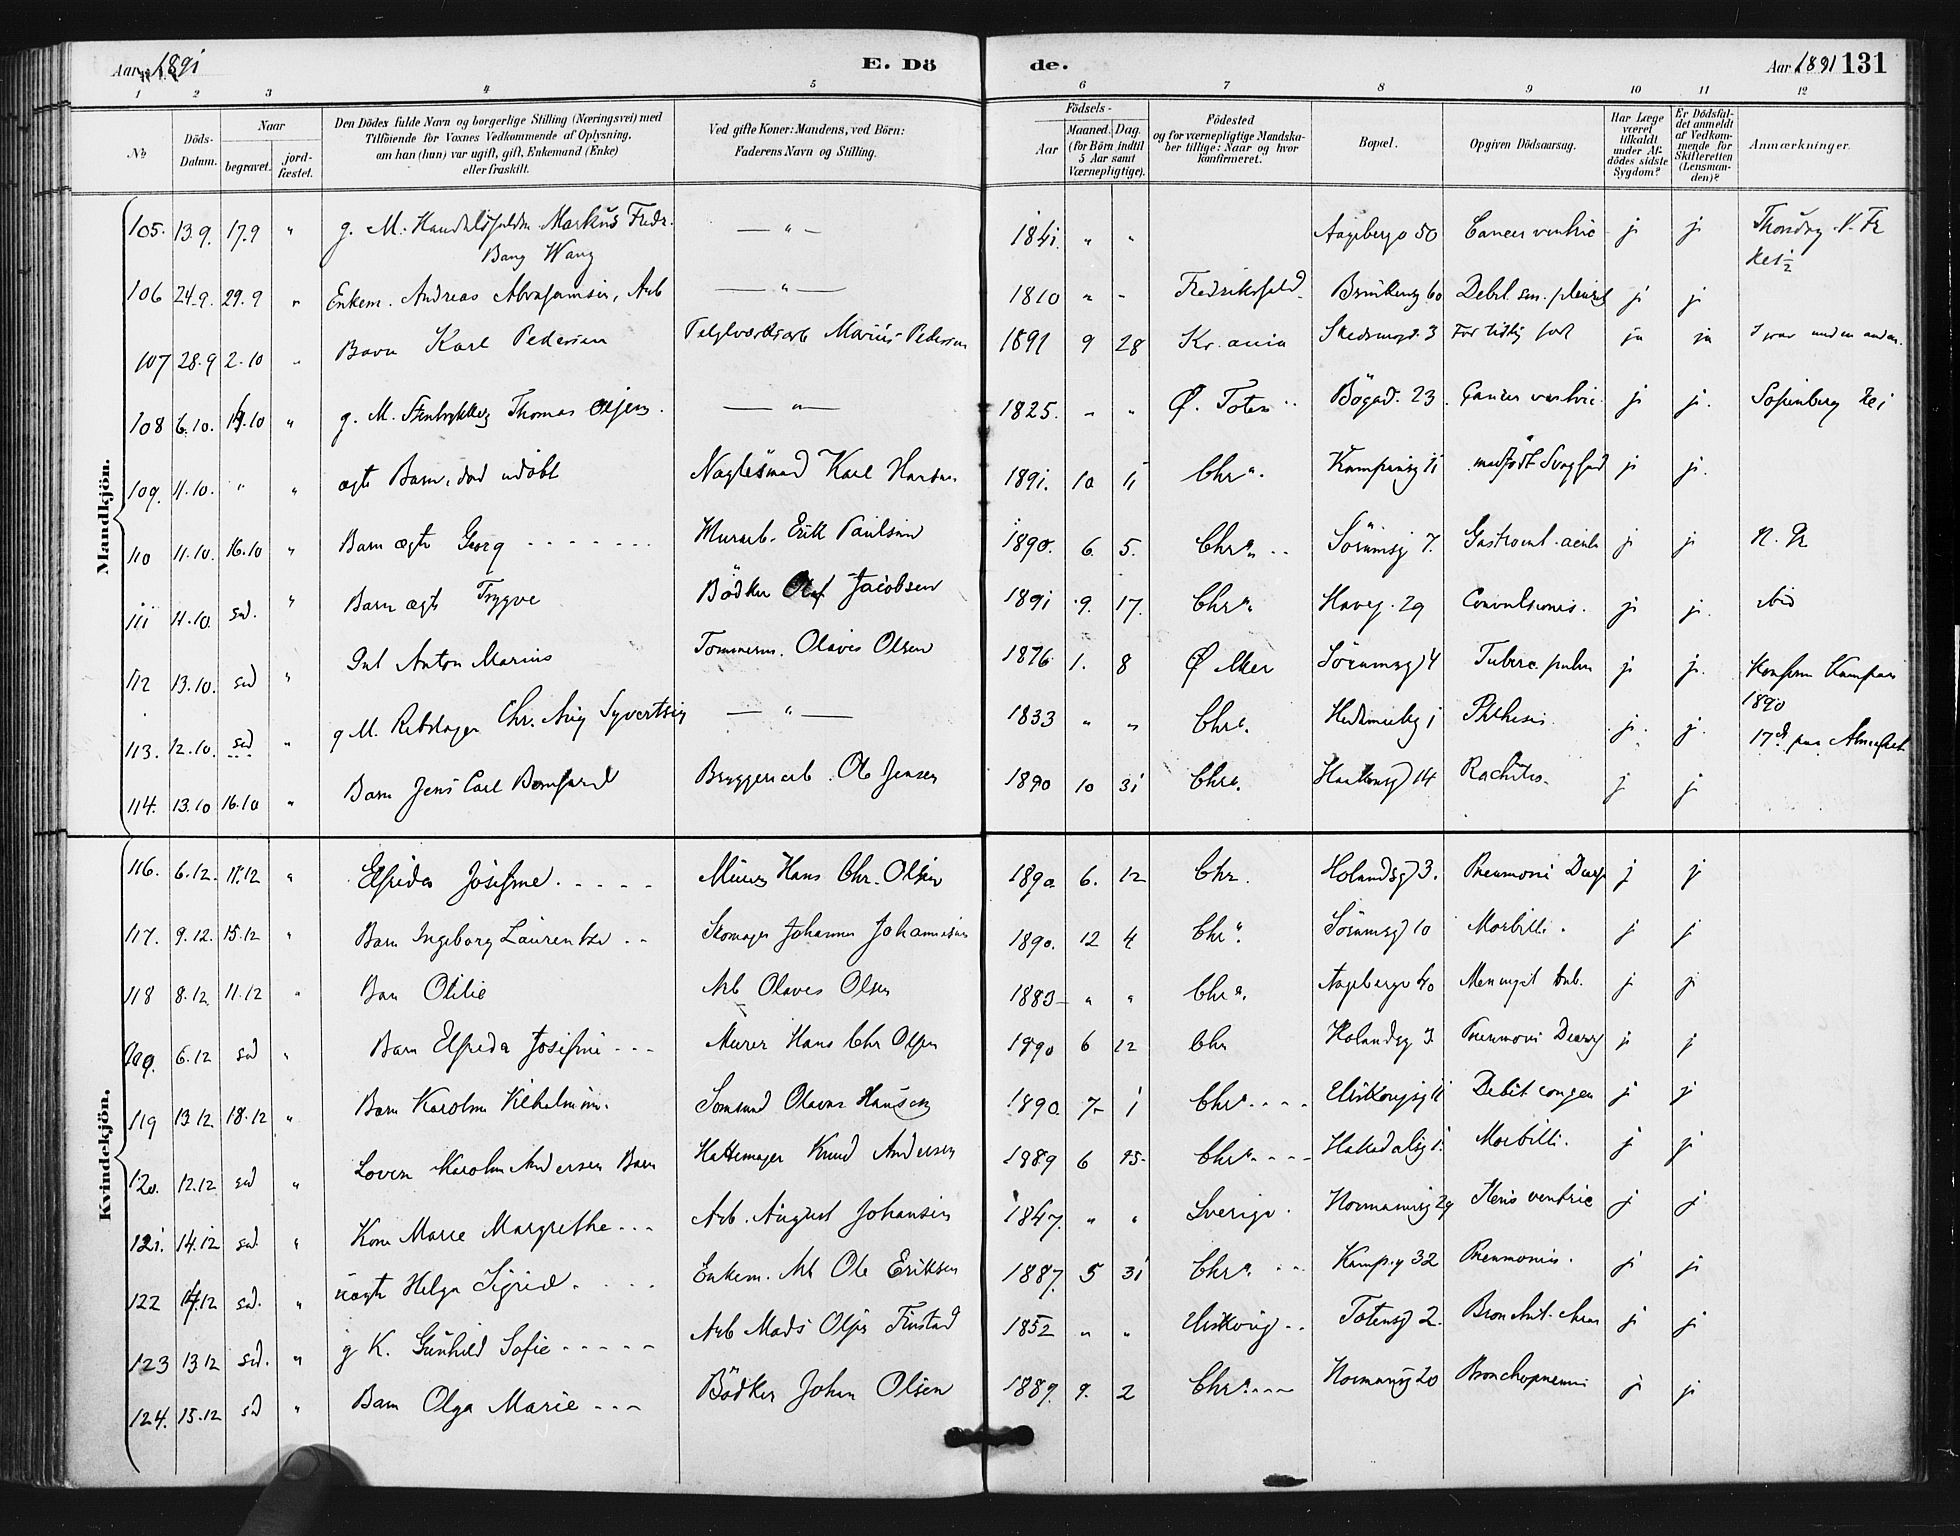 Aar 1891 E. Dö de. Aar 1891 131
1 2 3 4 5 6 7 8 9 10 11 12
No
Döds-Datum.
Naar
begravet.
jord-fæstet.
Den Dödes fulde Navn og borgerlige Stilling (Næringsvei) med
Tilföiende for Voxnes Vedkommende af Oplysning,
om han (hun) var ugift, gift, Enkemand (Enke)
eller fraskilt.
Ved gifte Koner: Mandens, ved Börn:
Faderens Navn og Stilling.
Födsels-
Aar
Maaned. Dag.
(for Börn indtil
5 Aar samt
Værnepligtige).
Födested
og for værnepligtige Mandska-
ber tillige: Naar og hvor
konfirmeret.
Bopæl.
Opgiven Dödsaarsag.
Har Læge
været
tilkaldt
under Af-
dödes sidste
Sygdom?
Er Dödsfal-
det anmeldt
af Vedkom-
mende for
Skifteretten
(Lensman-
den)?
Anmærkninger.
Mandkjön.
105. 13.9. 17.9 " g. M. Markus Fredr. — " — 1841. " " Aagebergv 50 Cancer ventric j j
Bang Wang
106 24.9. 29.9 " Enkem. Andreas Abrahamsen, Arb — " — 1810 " " 60 Debil. sen. j j
107 28.9 2.10 " Barn Karl Pedersen Teglværksarb Marius Pedersen 1891 9 28 Kr.ania 3 For tidlig født ja ja
108 6.10. 10 " g. M. Thomas — " — 1825. " " Ø. Toten Bögad. 23. Cancer ventric. j j. Sofienberg
109. 11.10. " " ægte Barn, død udøbt Karl 1891. 10 11 Chra. 11 medfødt Svaghed j j.
110 11.10. 16.10 " Barn ægte Georg Murarb. Erik Paulsen 1890. 6. 5. Chra. Sörumsg 7. j j
111 11.10. sd. " Barn ægte Trygve Bödker Olaf Jacobsen 1891 9. 17. Chra. Haveg. 29 Convulsiones. j j. ibid
112 13.10. sd " Anton Marius Tömmerm. Olaves Olsen 1876 1. 8 Ø Aker Sörumsg 4 Tuberc. pulm j j. Kampen
1890
113. 12.10. sd " g M. Rebslager Chr. Aug Syvertsen — " — 1833 " " Chra. Hedemarksg 1 Phthisis. j. j.
114. 13.10 16.10 " Barn Jens Carl Bryggeriarb. Ole Jensen 1890 10 31 Chra. 14 Rachitis. j j
Kvindekjön.
116. 6.12. 11.12 " Elfrida Josefine Murer Hans Chr. Olsen 1890. 6. 12 Chr. Hölandsg 3. Pneumoni j j
117. 9.12. 15.12 " Barn Ingeborg Laurentze Skomager Johannes Johannesen 1890. 12 4 Chra. Sörumsg 10 Morbilli. j j
118 8.12. 11.12 " Barn Otilie Arb Olaves Olsen 1883 " " Chra. Aagebergv 40 Meningit tub. j j
6.12 sd " Barn Elfrida Josefine Murer Hans Chr Olsen 1890 6 12 Chr Hölandsg 3 Pneumoni j j
119 13.12 18.12 " Barn Karoline Vilhelmine. Olavus Hansen 1890. 7 1 Chra. 11 Debil congen j j
120. 12.12 sd " Lovise Karoline Andersen Barn Hattemager Knud Andersen 1889 6 15 Chra. Hakadalsg 1. Morbilli. j j
121. 14.12 sd. " Kone Marie Margrethe Arb. August Johansen 1847. " " Sverige Normannsg 29 ventric j j
122 12 sd. " uægte Helga Sigrid Enkem. Arb Ole Eriksen 1887. 5 31 Chra. Kamp.g 32 Pneumonia. j j
123 13.12 sd. " g K. Gunhild Sofie Arb Mads Olsen Finstad 1852 " " Totensg 2. Bronchit. chron j j
124. 15.12 sd " Barn Olga Marie Bödker Johan Olsen 1889. 9. 2 Chra. Normannsg 20 Bronchopneumoni j j